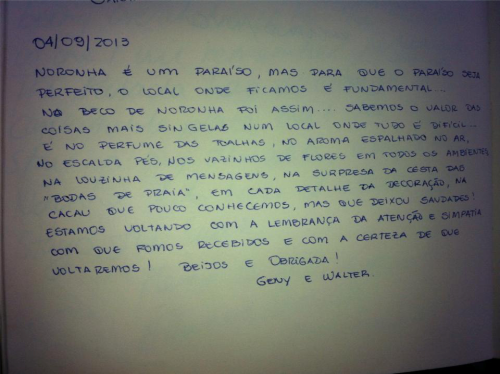 04/09/2013
NORONHA É UM PARAÍSO, MAS PARA QUE O PARAÍSO SEJA
PERFEITO, O LOCAL ONDE FICAMOS É FUNDAMENTAL...
NO BECO DE NORONHA FOI ASSIM.... SABEMOS O VALOR DAS
COISAS MAIS SINGELAS NUM LOCAL ONDE TUDO É DIFÍCIL...
É NO PERFUME DAS TOALHAS, NO AROMA ESPALHADO NO AR,
NO ESCALDA PÉS, NOS VAZINHOS DE FLORES EM TODOS OS AMBIENTES,
NA LOUZINHA DE MENSAGENS, NA SURPRESA DA CESTA DAS
"BODAS DE PRAIA", EM CADA DETALHE DA DECORAÇÃO, NA
CACAU QUE POUCO CONHECEMOS, MAS QUE DEIXOU SAUDADES!
ESTAMOS VOLTANDO COM A LEMBRANÇA DA ATENÇÃO E SIMPATIA
COM QUE FOMOS RECEBIDOS E COM A CERTEZA DE QUE
VOLTAREMOS! BEIJOS E OBRIGADA!
GENY E WALTER.